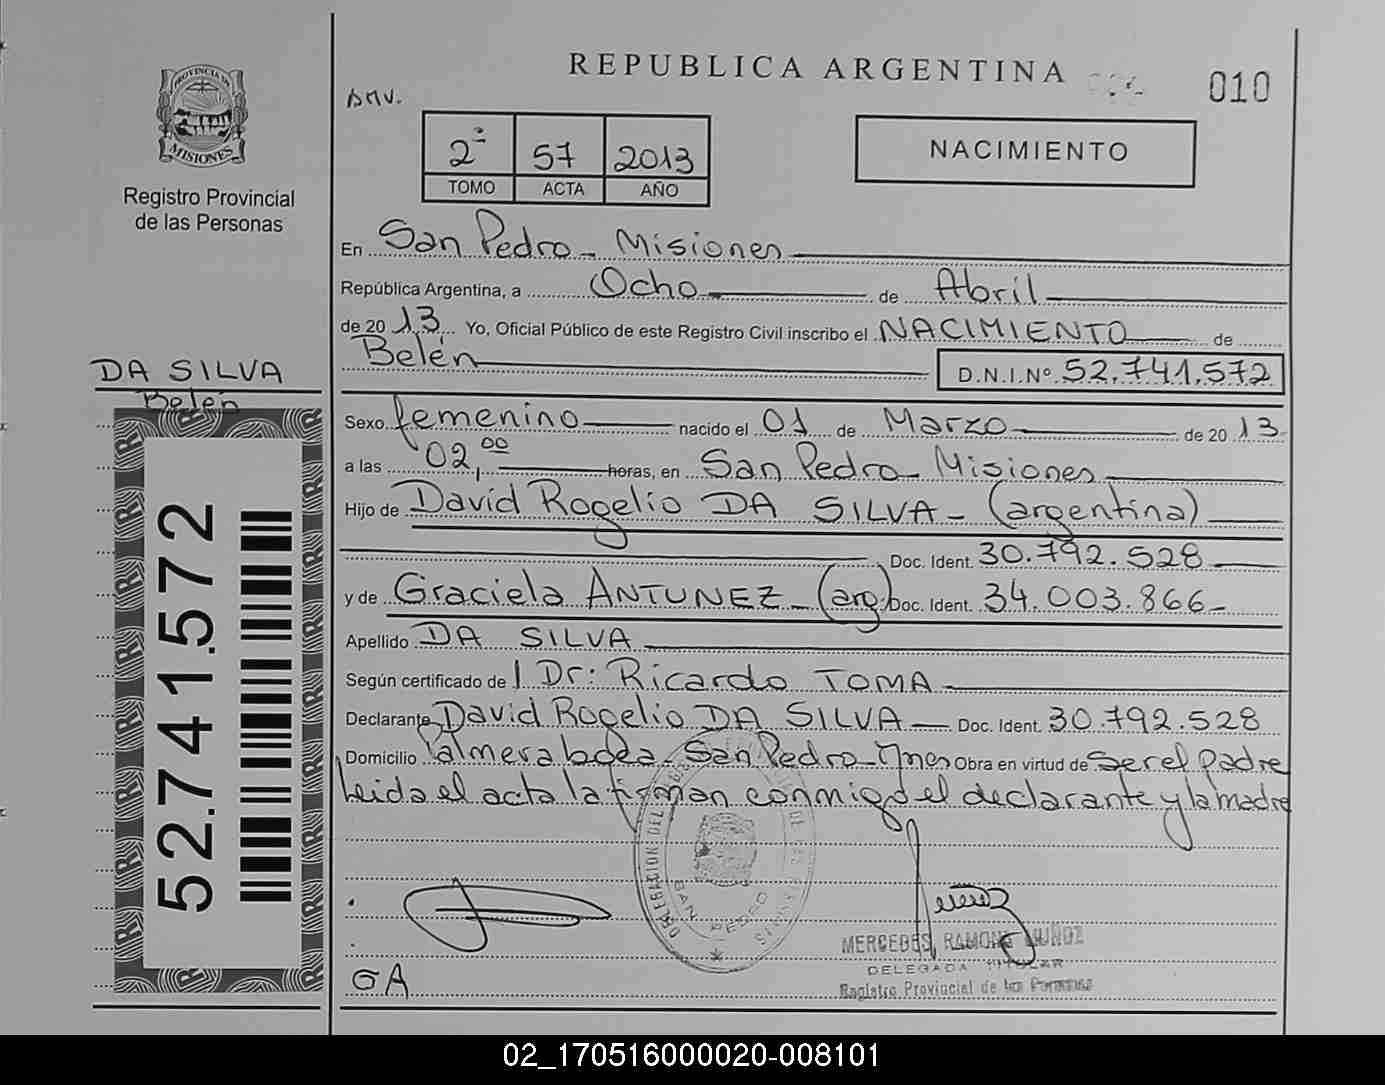 REPUBLICA ARGENTINA
010
PROVINCIA DE
MISIONES
Registro Provincial
de las Personas
2º 57 2013
TOMO ACTA AÑO
NACIMIENTO
En San Pedro - Misiones
República Argentina, a Ocho de Abril
de 20 13 Yo, Oficial Público de este Registro Civil inscribo el NACIMIENTO de
Belén D.N.I.Nº 52.741.572
DA SILVA
Belén
52.741.572
Sexo femenino nacido el 01 de Marzo de 20 13
a las 02,00 horas, en San Pedro - Misiones
Hijo de David Rogelio DA SILVA - (argentina)
Doc. Ident. 30.792.528
y de Graciela ANTUNEZ - (arg) Doc. Ident. 34.003.866 -
Apellido DA SILVA
Según certificado de / Dr: Ricardo TOMA
Declarante David Rogelio DA SILVA - Doc. Ident. 30.792.528
Domicilio Palmera boca - San Pedro - Mnes Obra en virtud de Ser el padre
leida el acta la firman conmigo el declarante y la madre
DELEGACION DEL
SAN PEDRO
GA
MERCEDES RAMONA MUÑOZ
DELEGADA TITULAR
Registro Provincial de las Personas
02_170516000020-008101